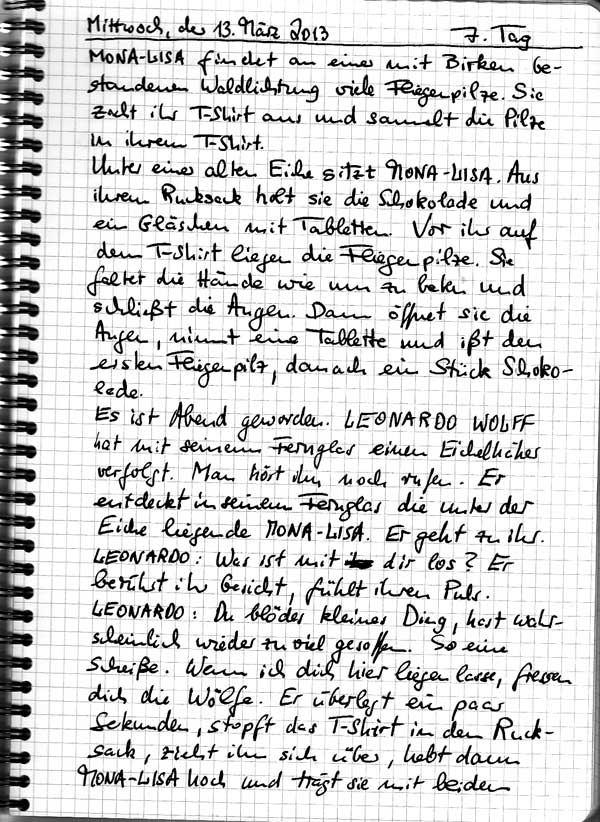 Mittwoch, der 13. März 2013 7. Tag
MONA-LISA findet an einer mit Birken be-
standenen Waldlichtung viele Fliegenpilze. Sie
zieht ihr T-Shirt aus und sammelt die Pilze
in ihrem T-Shirt.
Unter einer alten Eiche sitzt MONA-LISA. Aus
ihrem Rucksack holt sie die Schokolade und
ein Gläschen mit Tabletten. Vor ihr auf
dem T-Shirt liegen die Fliegenpilze. Sie
faltet die Hände wie um zu beten und
schließt die Augen. Dann öffnet sie die
Augen, nimmt eine Tablette und ißt den
ersten Fliegenpilz, danach ein Stück Schoko-
lade.
Es ist Abend geworden. LEONARDO WOLFF
hat mit seinem Fernglas einen Eichelhäher
verfolgt. Man hört ihn noch rufen. Er
entdeckt in seinem Fernglas die unter der
Eiche liegende MONA-LISA. Er geht zu ihr.
LEONARDO: Was ist mit dir los? Er
berührt ihr Gesicht, fühlt ihren Puls.
LEONARDO: Du blödes kleines Ding, hast wahr-
scheinlich wieder zu viel gesoffen. So eine
Scheiße. Wenn ich dich hier liegen lasse, fressen
dich die Wölfe. Er überlegt ein paar
Sekunden, stopft das T-Shirt in den Ruck-
sack, zieht ihn sich über, hebt dann
MONA-LISA hoch und trägt sie mit beiden